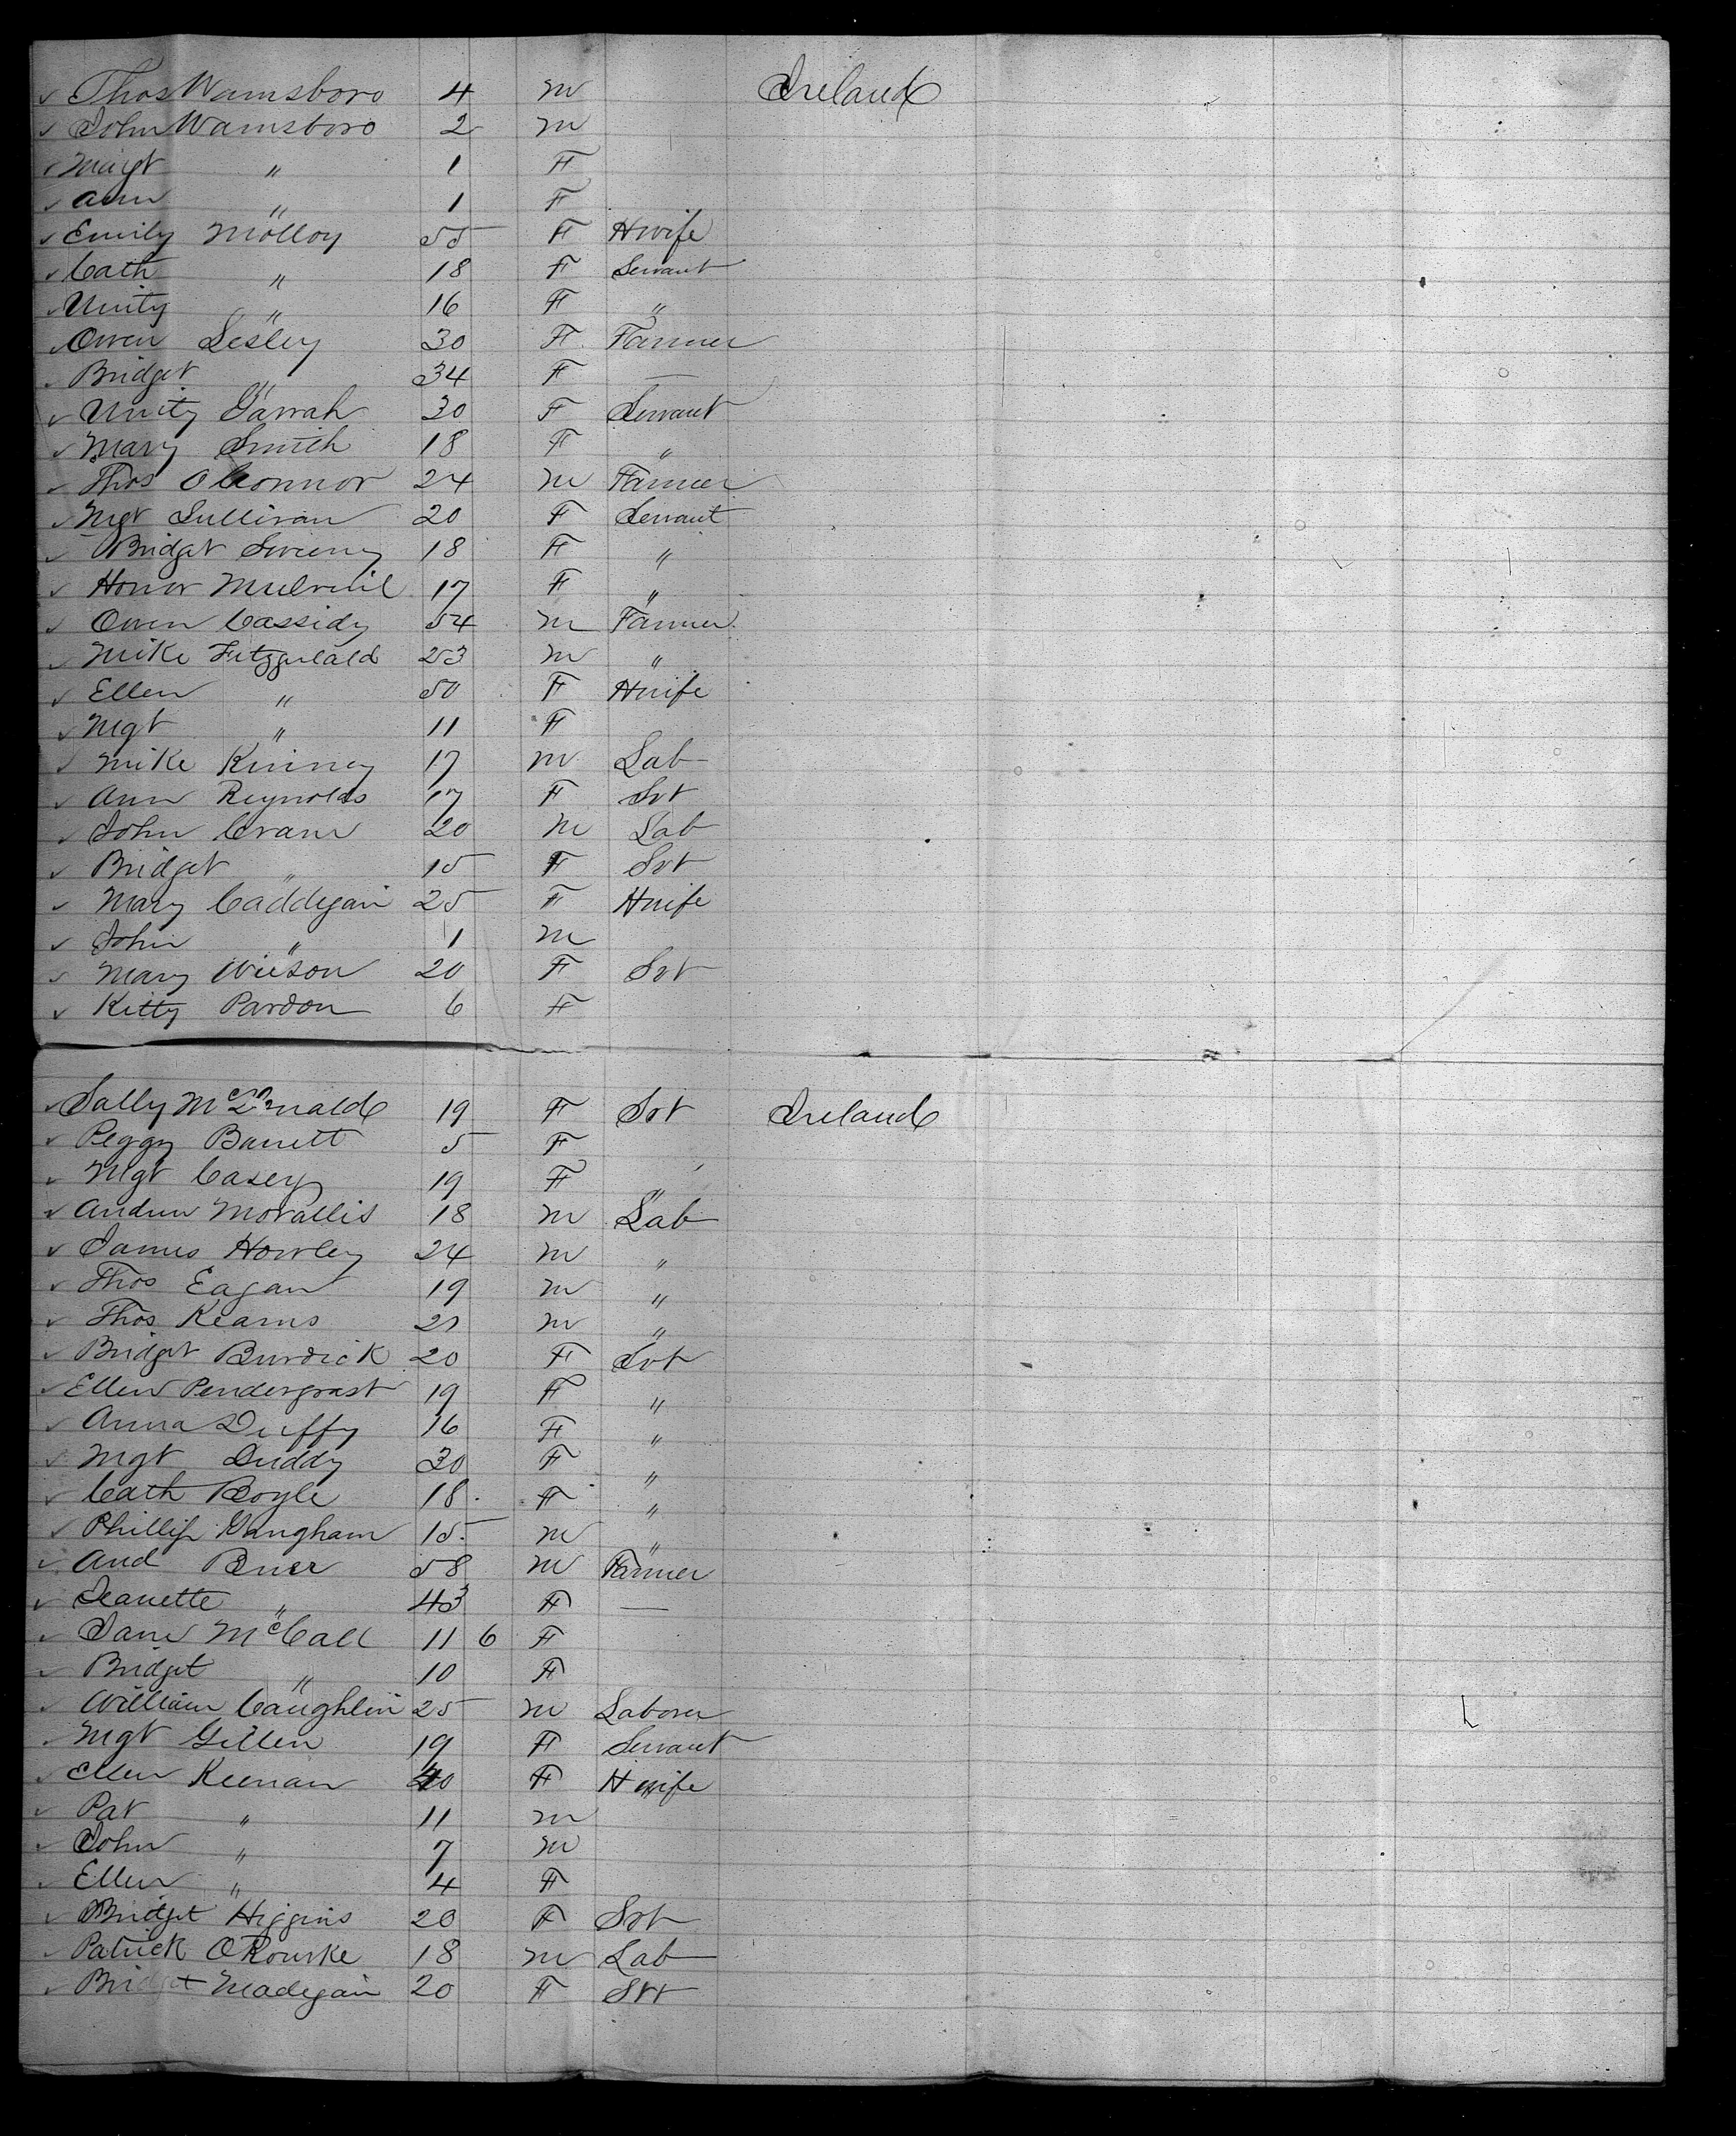 Thos Wamsboro 4 M Ireland
John Wamsboro 2 M
Margt " 1 F
Ann " 1 F
Emily Molloy 55 F Hwife
Cath " 18 F Servant
Unity " 16 F "
Owen Lesley 30 F Farmer
Bridget " 34 F —
Unity Garrah 30 F Servant
Mary Smith 18 F "
Thos OConnor 24 M Farmer
Mgt Sullivan 20 F Servant
Bridget Sweeny 18 F "
Honor Mulvenil 17 F "
Owen Cassidy 54 M Farmer
Mike Fitzgerald 23 M "
Ellen " 50 F Hwife
Mgt " 11 F
Mike Kinney 17 M Lab
Ann Reynolds 17 F Svt
John Crane 20 M Lab
Bridget " 15 F Svt
Mary Caddegan 25 F Hwife
John " 1 M
Mary Wilson 20 F Svt
Kitty Pardon 6 F
Sally McDonald 19 F Svt Ireland
Peggy Barrett 5 F
Mgt Casey 19 F "
Andrew Morallis 18 M Lab
James Howley 24 M "
Thos Eagan 19 M "
Thos Kearns 21 M "
Bridget Burdick 20 F Svt
Ellen Pendergrast 19 F "
Anna Duffy 16 F "
Mgt Duddy 30 F "
Cath Boyle 18 F "
Phillip Gangham 15 M "
And 58 M Farmer
Jeanette " 43 F —
Jane McCall 11 6 F
Bridget " 10 F
William Caughlin 25 M Laborer
Mgt Gillen 19 F Servant
Ellen Keenan 40 F Hwife
Pat " 11 M
John " 7 M
Ellen " 4 F
Bridget Higgins 20 F Svt
Patrick ORourke 18 M Lab
Bridget Madegan 20 F Svt